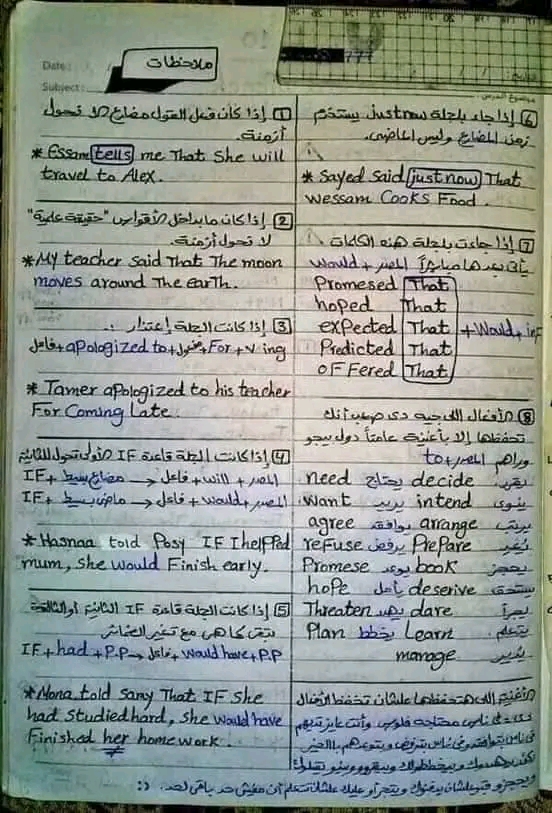 Date:
Subject:
ملاحظات
1 إذا كان فعل القول مضارع لا تحول
أزمنة.
* Essam tells me That She will
travel to Alex.
2 إذا كان ما بداخل الأقواس "حقيقة علمية"
لا تحول أزمنة.
* My teacher said That The moon
moves around The earth.
3 إذا كانت الجملة إعتذار :.
فاعل + apologized to + مفعول + For + v ing
* Tamer apologized to his teacher
For Coming Late.
4 إذا كانت الجملة قاعدة IF الأولى تحول للثانية
IF + مضارع بسيط → فاعل + will + المصدر
IF + ماضى بسيط → فاعل + would + المصدر
* Hasnaa told Posy IF I helpped
mum, She would Finish early.
5 إذا كانت الجملة قاعدة IF الثانية أو الثالثة
تبقى كما هى مع تغير الضمائر
IF + had + P.P → فاعل + would have + P.P
* Mona told Sany That IF She
had Studied hard, she would have
Finished her home work.
موضوع الدرس
6 إذا جاء بالجملة just now يستخدم
زمن المضارع وليس الماضى.
* Sayed Said just now That
wessam Cooks Food.
7 إذا جاءت بالجملة هذه الكلمات
يأتى بعدها مباشرة المصدر + would
Promesed That
hoped That
expected That + Would + inf
Predicted That
oFFered That
8 الأفعال اللى جيه دى صعب أنك
تحفظها إلا بأغنية عامتاً دول بيجو
وراهم المصدر + to
need يحتاج decide يقرر
want يريد intend ينوى
agree يوافق arrange يرتب
reFuse يرفض PrePare يُعد
Promese يوعد book يحجز
hope يأمل deserive يستحق
Threaten يهدد dare يجرأ
Plan يخطط Learn يتعلم
manage يدير
الأغنيه اللى هتحفظها علشان تحفظ الأفعال
دى فى ناس محتاجه فلوس وأنت عايز تديهم